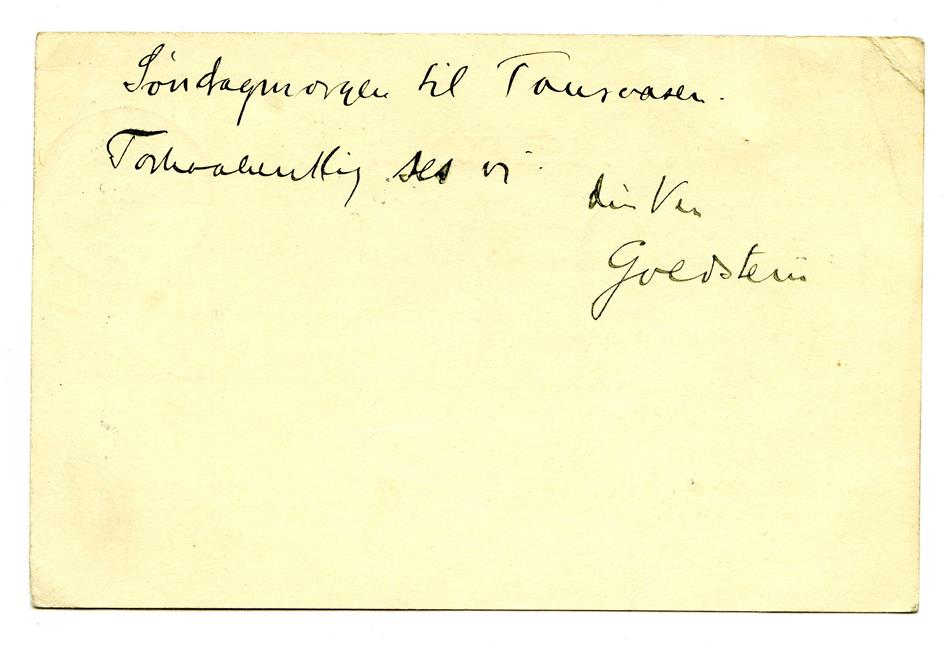 Søndagmorgen til
Forhaabentlig ses vi.
din Ven
Goldstein